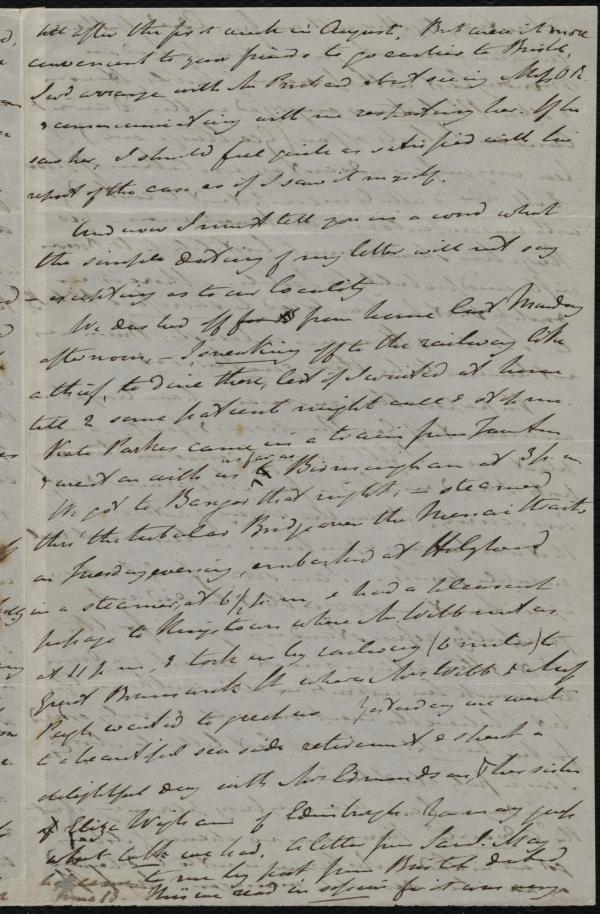 till after the first week in August. But were it more
convenient to your friends to go earlier to Bristol,
I wd arrange with Mr abt seeing Miss O R.
& communicating with me respecting her. If he
saw her, I should feel quite as satisfied with his
report of the case, as if I saw it myself.
And now I must tell you in a word what
the simple dating of my letter will not say
— excepting as to our locality
We dashed off from home last Monday
afternoon, — I sneaking off to the railway like
a thief, to dine there, lest if I waited at home
till 2 some patient might call & stop me
Kate Parkes came in a train from Taunton
& went on with us as far as to Birmingham at 3 p.m
We got to Bangor that night, — steamed
thro' the tubular Bridge over the Menai Straits
on Tuesday evening, embarked at Holyhead
in a steamer, at 6½ p.m, & had a pleasant
passage to Kingstown where Mr Webb met us
at 11 p.m, & took us by railway (6 miles) to
Great Brunswick St, where Mrs Webb & Miss
Pugh waited to greet us Yesterday we went
to a beautiful sea side retirement & spent a
delightful day with Mrs Edmundson, & her sister
Eliza Wigham of Edinburgh. You may judge
what talk we had. A letter from Saml. May
to me by post from Bristol dated
June 13. was read in for it was very